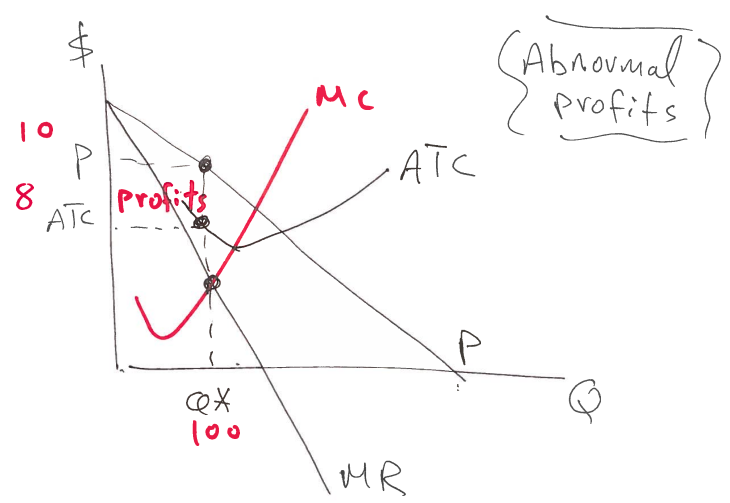 $
Abnormal
profits
MC
10
P
ATC
8
profits
ATC
P
Q*
Q
100
MR